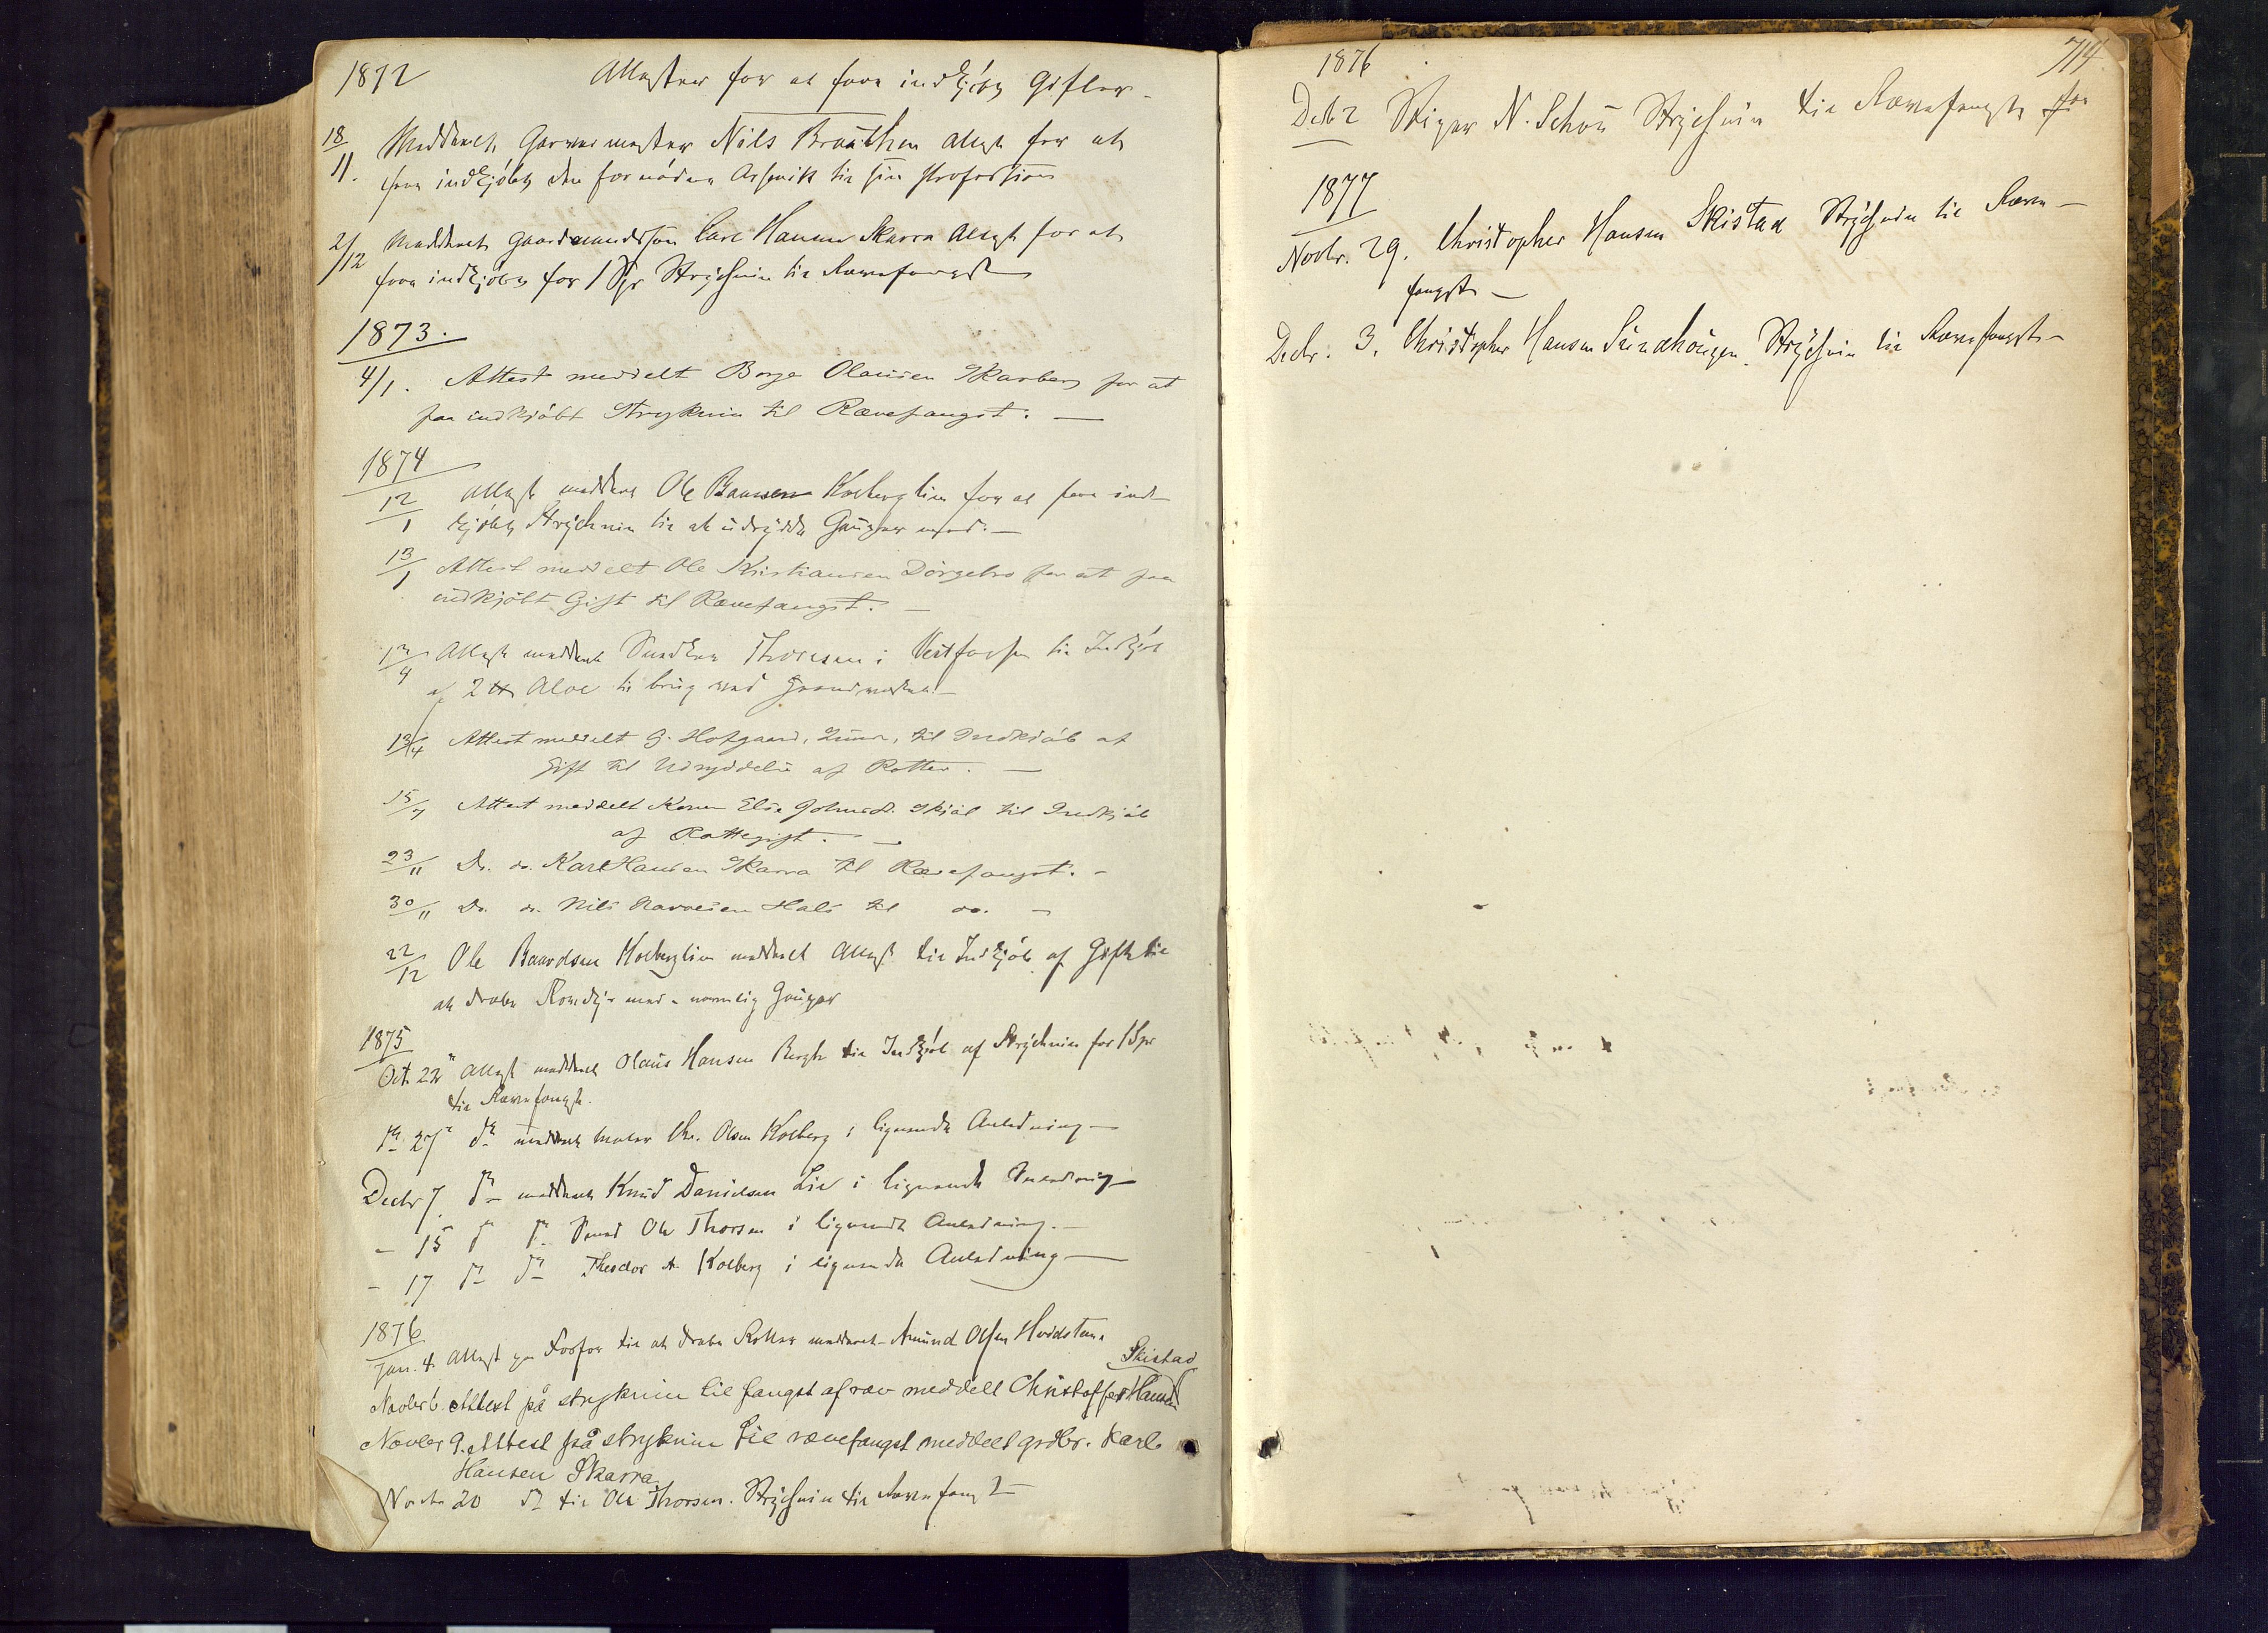 1872 Attester for at faae indkjøbt Gifter.
18/11. Meddeelt Garvermester Nils Braathen Attest for at
faae indkjøbt den fornødne Arsenik til sin Profession
2/12 Meddeelt Gaardmandssøn Carl Hansen Skarra Attest for at
faae indkjøbt for 1 Spr Strychnin til Rævefangst
1873.
4/1. Attest meddelt Borge Olausen Skarberg for at
faa indkjöbt Stryknin til Rævefangst. —
1874
12/1 Attest meddeelt Ole Baardsen Kolberglien for at faae ind-
kjøbt Strychnin til at udrydde Gauper med. —
13/1 Attest meddelt Ole Kristiansen Dörgebro for at faa
indkjöbt Gift til Rævefangst. —
12/4 Attest meddeelt Snedker Thoresen i Vestfossen til Indkjøb
af 2 ℔ Aloe til brug ved
13/4 Attest meddelt G. Hofgaard, til Indkjöb af
Gift til Udryddelse af Rotter. —
15/7 Attest meddelt Konen Else Skjöl til Indkjöb
af Rottegift. —
23/11 Do. do. Karl Hansen Skarra til Rævefangst. —
30/11 Do. do. Nils Hals til do. —
22/12 Ole Baardsen Kolberglien meddeelt Attest til Indkjøb af Gift til
at dræbe Rovdyr med - navnlig Gauper
1875
Oct. 22 Attest meddeelt Olaus Hansen Berget til Indkjøb af Strychnin for 1 Spr
til Rævefangst.
do 27 do meddeelt Maler Chr. Olsen Kolberg i lignende Anledning —
Decbr 7. do meddeelt Knud Danielsen Lie i lignende Anledning —
- 15 do do Ole Thorsen i lignende Anledning. —
- 17 do do Theodor A. Kolberg i lignende Anledning —
1876.
Jan. 4. Attest paa Fosfor til at dræbe Rotter meddeelt Amund Olsen Hvidsteen
Skistad
Novbr 6. Attest på stryknin til fangst af ræv meddelt Christoffer Hansen
Novbr 9. Attest på stryknin til rævefangst meddelt grdbr. Karl
Hansen Skarra
Novbr 20 do til Ole Thorsen. Strychnin til Rævefangst —
714
1876
Decbr 2 Stiger N. Schou Strychnin til Rævefangst
1877
Novbr. 29. Christopher Hansen Skistad Strychnin til Ræve-
fangst —
Decbr. 3. Christopher Hansen Sundhougen Strychnin til Rævefangst —